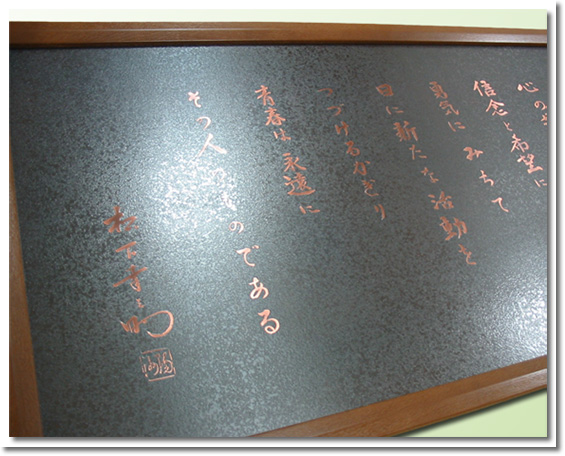 心の
信念と希望に
勇気にみちて
日に新たな活動を
つづけるかぎり
青春は永遠に
その人のものである
松下幸之助